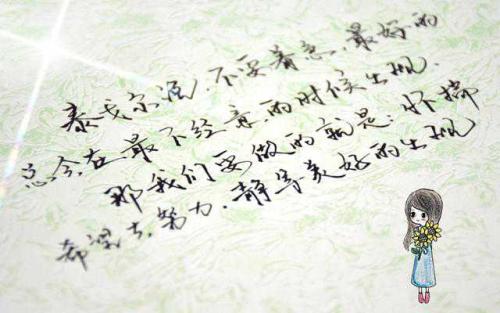 泰戈尔说,不要着急,最好的
总会在最不经意的时候出现.
那我们要做的就是:怀揣
希望去努力,静等美好的出现